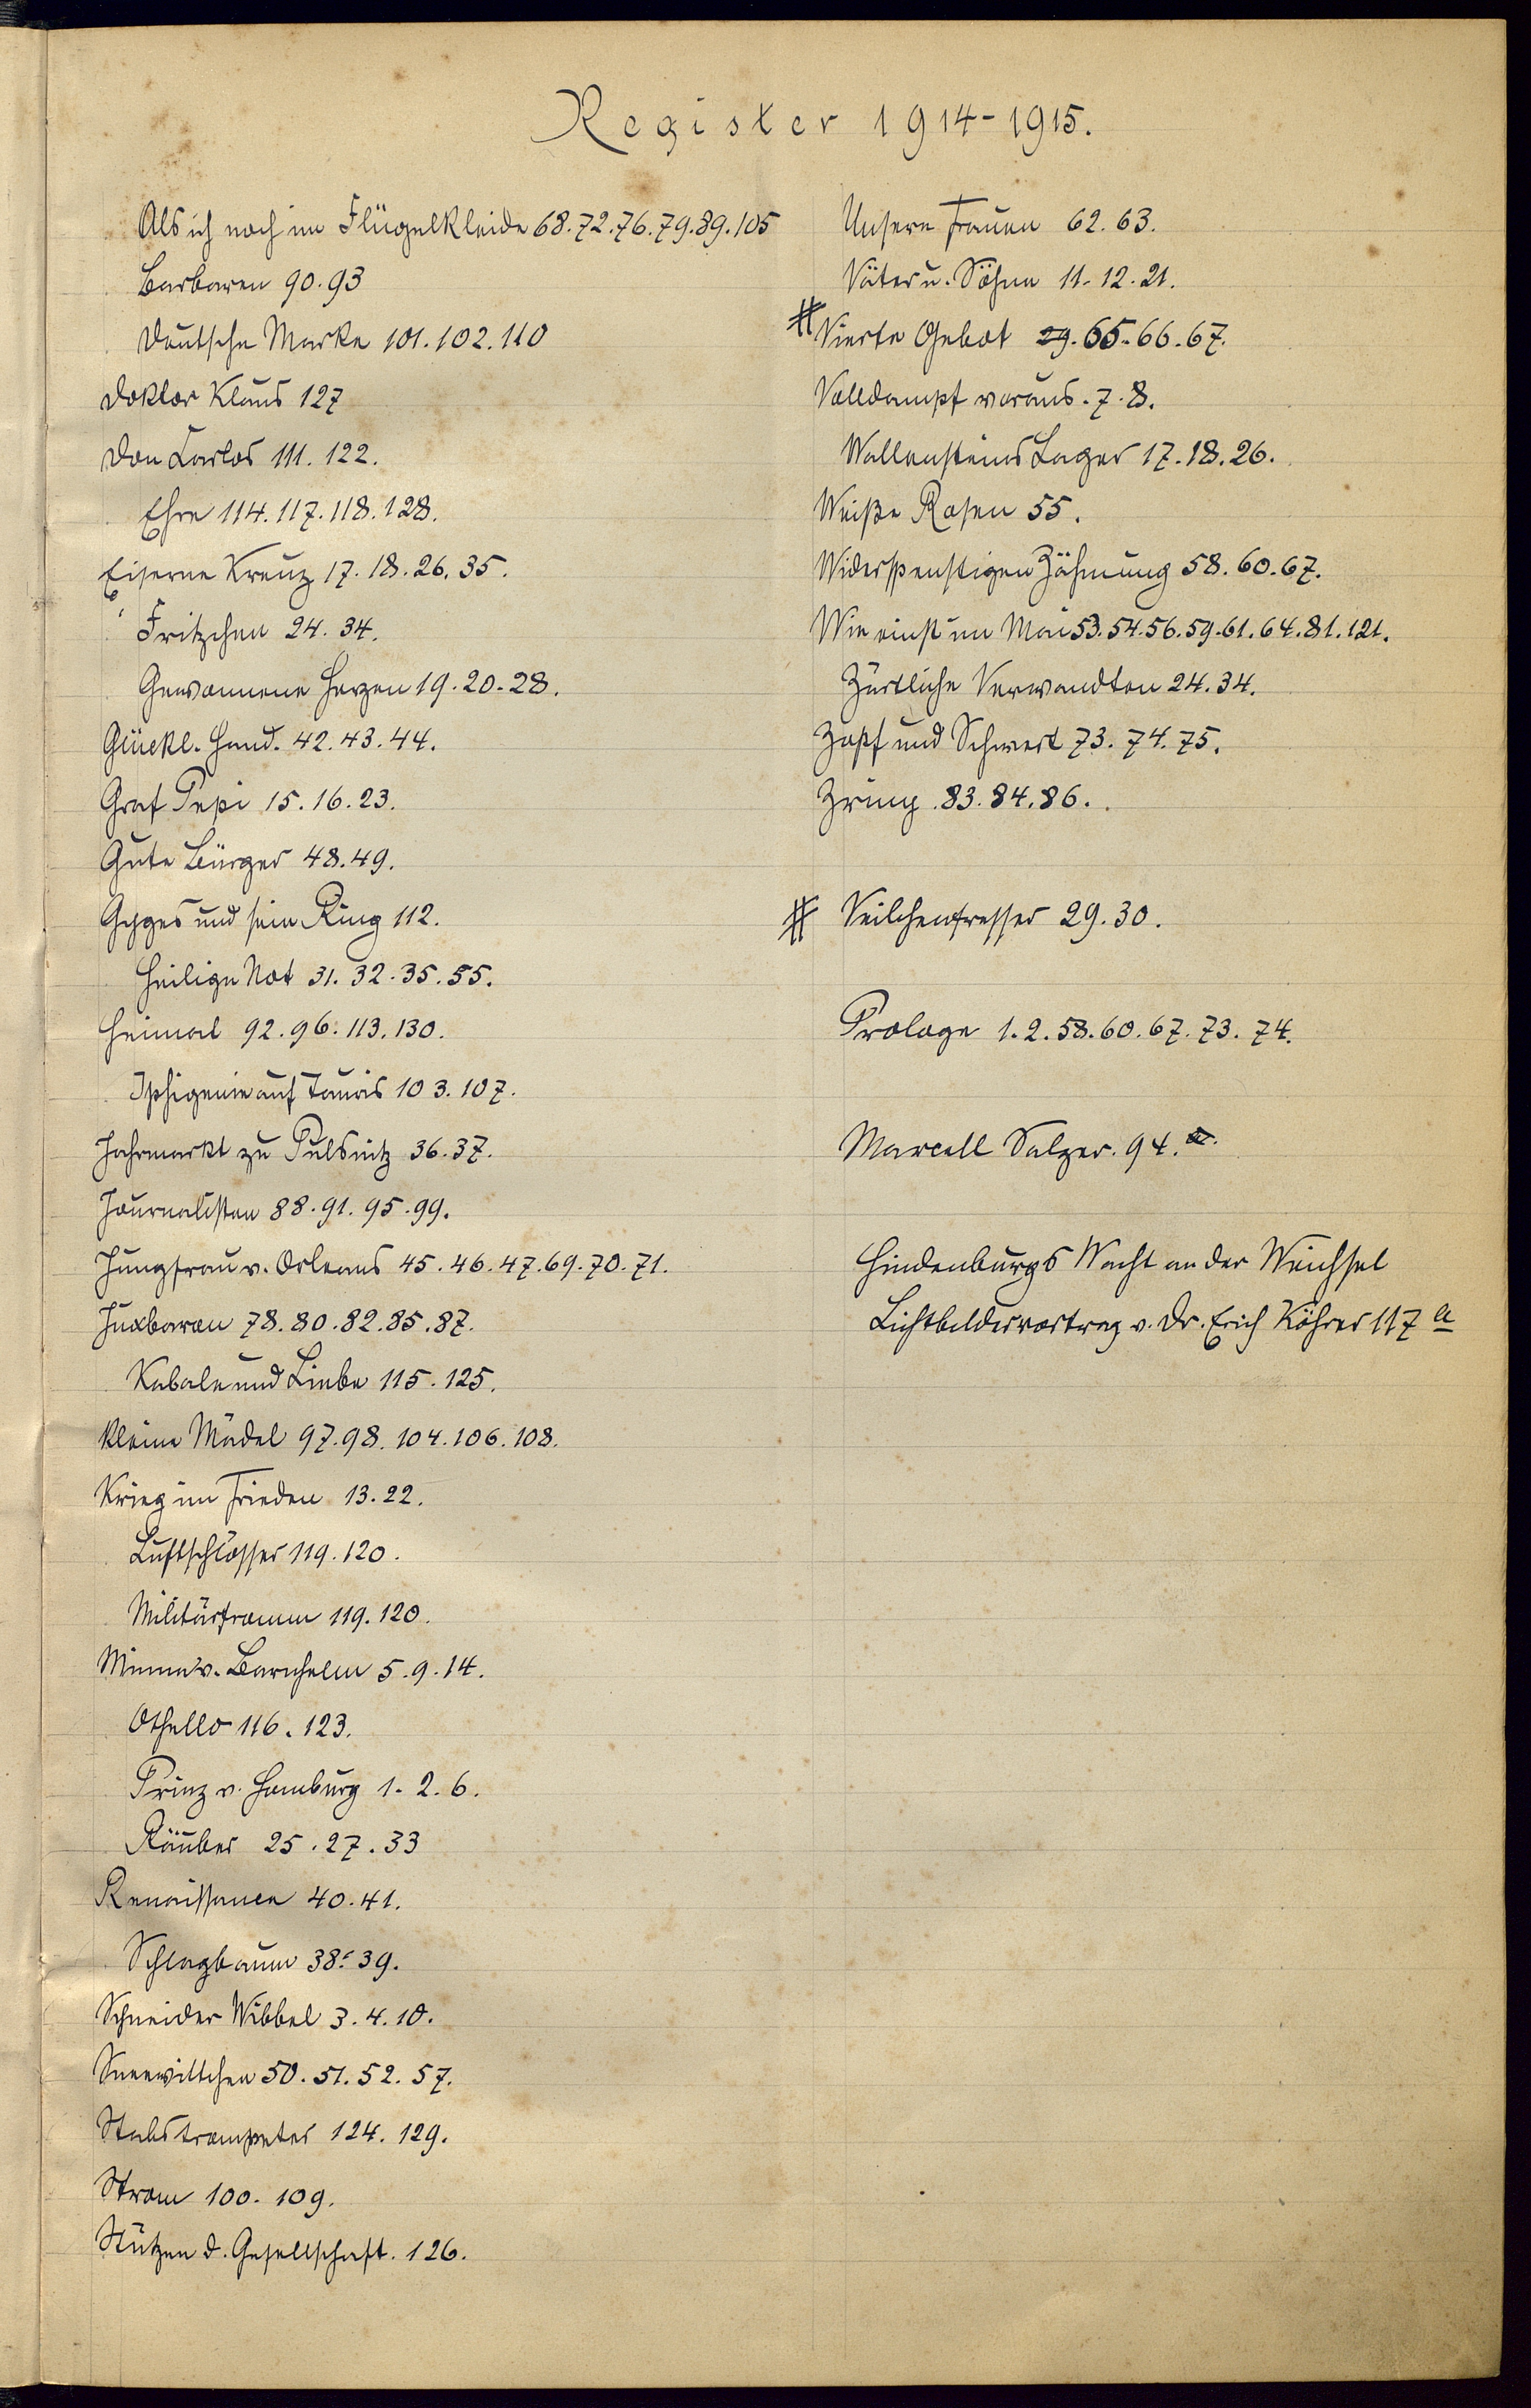 Register 1914-1915.
Als ich noch im Flügelkleide 68.72.76.79.89.105
Barbaren 90.93
Deutsche Marke 101.102.110
Doktor Klaus 127
Don Carlos 111.122.
Ehre 114.117.118.128.
Eiserne Kreuz 17.18.26.35.
Fritzchen 24.34.
Gewonnene Herzen 19.20.28.
Glückl. Hand. 42.43.44.
Graf Pepi 15.16.23.
Gute Bürger 48.49.
Gyges und sein Ring 112.
Heilige Not 31.32.35.55.
Heimat 92.96.113.130.
Iphigenie auf Tauris 103.107.
Jahrmarkt zu Pulsnitz 36.37.
Journalisten 88.91.95.99.
Jungfrau v. Orleans 45.46.47.69.70.71.
Juxbaron 78.80.82.85.87.
Kabale und Liebe 115.125.
Kleine Mädel 97.98.104.106.108.
Krieg im Frieden 13.22.
Luftschlösser 119.120.
Militärfromm 119.120.
Minna v. Barnhelm 5.9.14.
Othello 116.123.
Prinz v. Homburg 1.2.6.
Räuber 25.27.33
Renaissance 40.41.
Schlagbaum 38.39.
Schneider Wibbel 3.4.10.
Sneewittchen 50.51.52.57.
Stabstrompeter 124.129.
Strom 100.109.
Stützen d. Gesellschaft. 126.
Unsere Frauen 62.63.
Väter u. Söhne 11.12.21.
# Vierte Gebot 29.65.66.67.
Volldampf voraus. 7.8.
Wallensteins Lager 17.18.26.
Weiße Rosen 55.
Widerspenstigen Zähmung 58.60.67.
Wie einst im Mai 53.54.56.59.61.64.81.121.
Zärtliche Verwandten 24.34.
Zopf und Schwert 73.74.75.
Zriny 83.84.86.
# Veilchenfresser 29.30.
Prologe 1.2.58.60.67.73.74.
Marcell Salzer. 94.a.
Hindenburgs Wacht an der Weichsel
Lichtbildervortrag v. Dr. Erich Köhrer 117 a